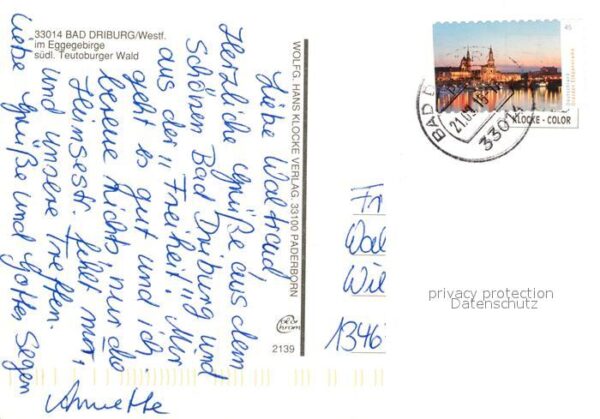 33014 BAD DRIBURG/Westf.
im Eggegebirge
südl. Teutoburger Wald
Liebe Waltraud,
Herzliche Grüße aus dem
schönen Bad Driburg und
aus der "Freiheit". Mir
geht es gut und ich
bereue nichts nur die
Heinsestr. fehlt mir,
und unsere Treffen.
Liebe Grüße und Gottes Segen
Annette
WOLFG. HANS KLOCKE VERLAG 33100 PADERBORN
2139
45
KLOCKE - COLOR
BAD D
21.09.16
33014
Fr
Wal
Wil
1346
privacy protection
Datenschutz